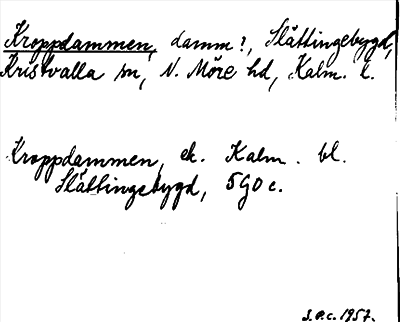 Kroppdammen, damm?, Slättingebygd,
Kristvalla sn, N. Möre hd, Kalm. l.
Kroppdammen, ek. Kalm. bl.
Slättingebygd, 5G0c.
S.P.C. 1957.